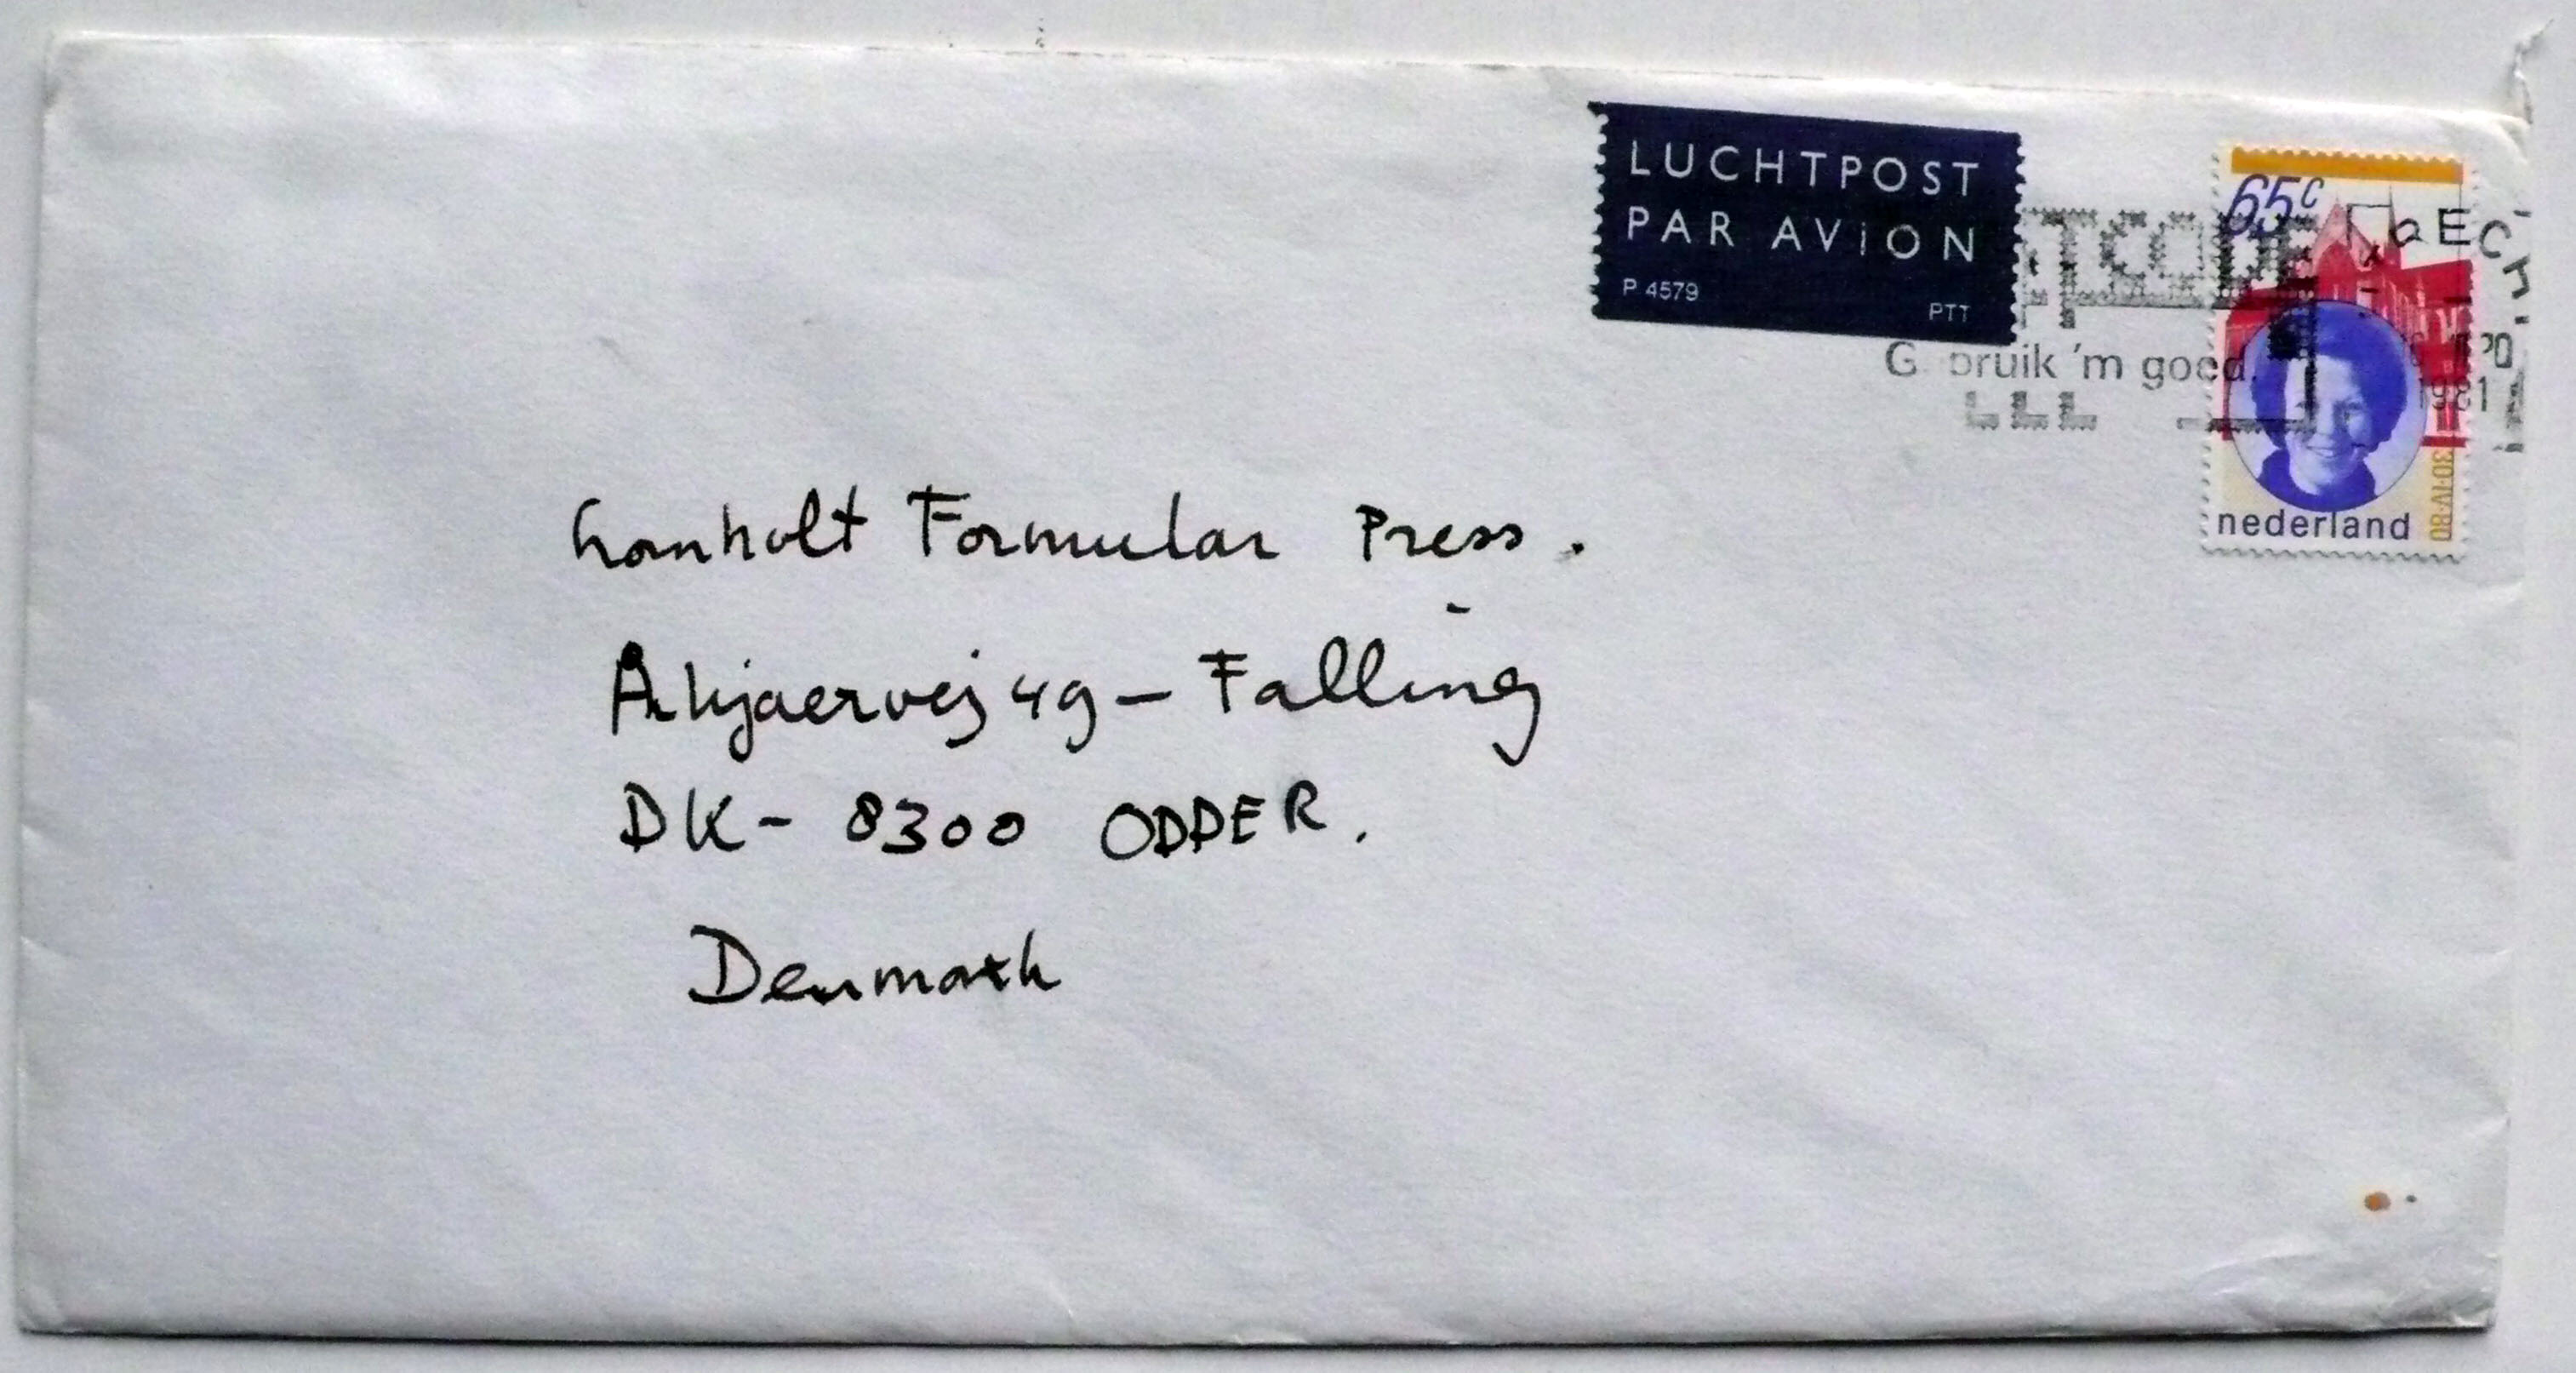 LUCHTPOST
PAR AViON
P 4579
PTT
65c
TCODE
bruik 'm goed.
1981
30·IV·80
nederland
Lomholt Formular Press.
Åkjaervej 49 - Falling
DK- 8300 ODDER.
Denmark